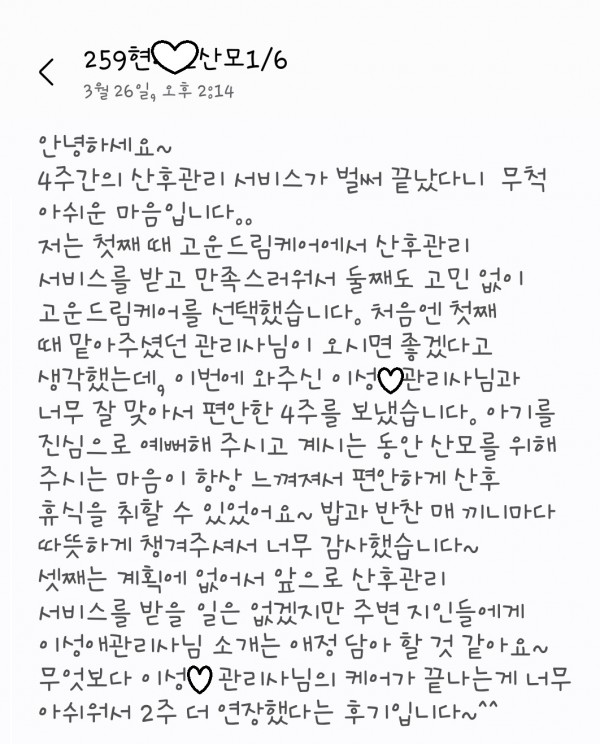 259현♡산모1/6
3월 26일, 오후 2:14
안녕하세요~
4주간의 산후관리 서비스가 벌써 끝났다니 무척
아쉬운 마음입니다..
저는 첫째 때 고운드림케어에서 산후관리
서비스를 받고 만족스러워서 둘째도 고민 없이
고운드림케어를 선택했습니다. 처음엔 첫째
때 맡아주셨던 관리사님이 오시면 좋겠다고
생각했는데, 이번에 와주신 이성♡관리사님과
너무 잘 맞아서 편안한 4주를 보냈습니다. 아기를
진심으로 예뻐해 주시고 계시는 동안 산모를 위해
주시는 마음이 항상 느껴져서 편안하게 산후
휴식을 취할 수 있었어요~ 밥과 반찬 매 끼니마다
따뜻하게 챙겨주셔서 너무 감사했습니다~
셋째는 계획에 없어서 앞으로 산후관리
서비스를 받을 일은 없겠지만 주변 지인들에게
이성애관리사님 소개는 애정 담아 할 것 같아요~
무엇보다 이성♡ 관리사님의 케어가 끝나는게 너무
아쉬워서 2주 더 연장했다는 후기입니다~^^